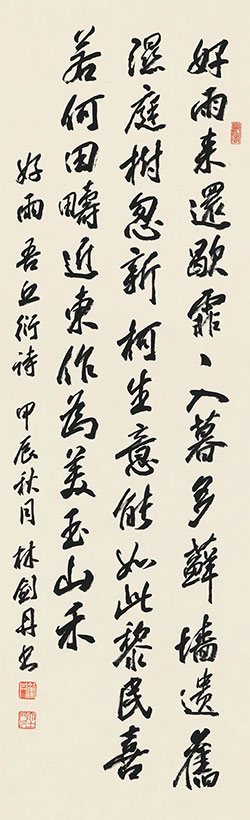 好雨来還歇霏〻入暮多蘚墙遗舊
濕庭樹忽新柯生意能如此黎民喜
若何田疇近東作為美玉山禾
好雨 吾丘衍诗 甲辰秋月 林剑丹书